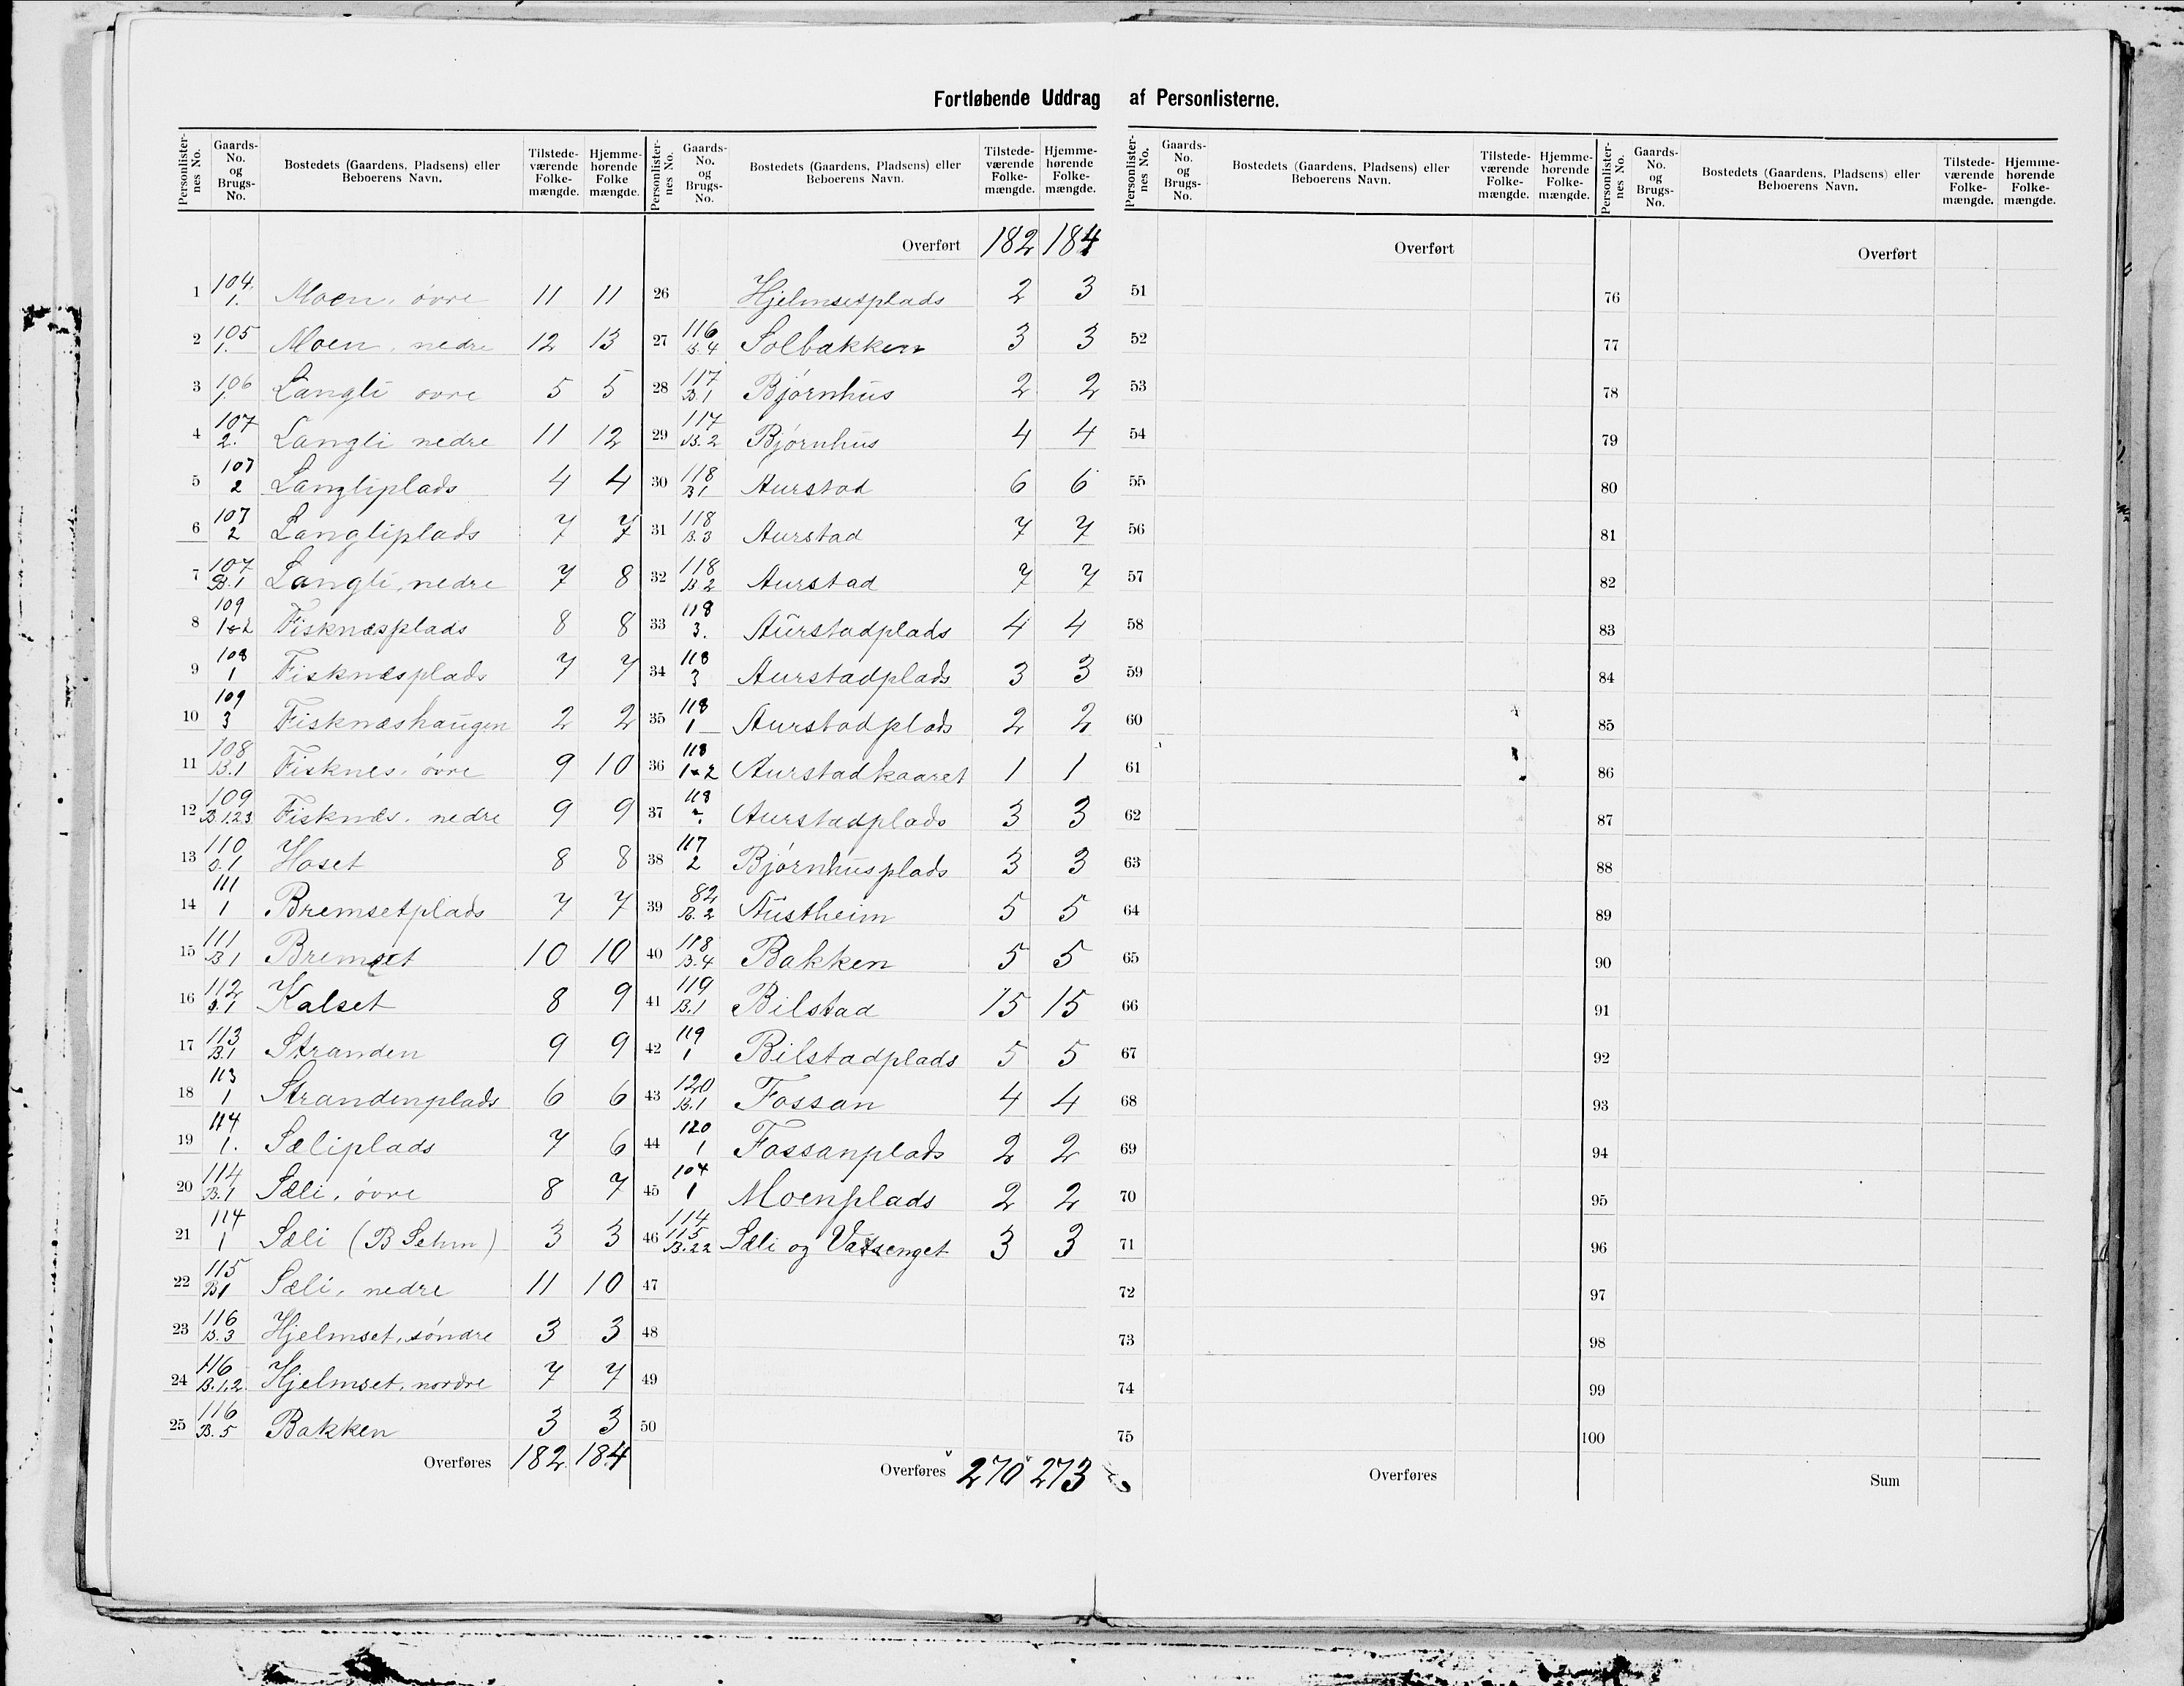 Fortløbende Uddrag af Personlisterne.
Personlisternes No. | Gaards-No. og Brugs-No. | Bostedets (Gaardens, Pladsens) eller Beboerens Navn. | Tilstedeværende Folkemængde. | Hjemmehørende Folkemængde.
1 | 104. 1. | Moen, øvre | 11 | 11
2 | 105 1. | Moen, nedre | 12 | 13
3 | 106 1. | Langli øvre | 5 | 5
4 | 107 2. | Langli nedre | 11 | 12
5 | 107 2 | Langliplads | 4 | 4
6 | 107 2 | Langliplads | 7 | 7
7 | 107 B.1 | Langli, nedre | 7 | 8
8 | 109 1&2 | Fisknæsplads | 8 | 8
9 | 108 1 | Fisknæsplads | 7 | 7
10 | 109 3 | Fisknæshaugen | 2 | 2
11 | 108 B.1 | Fisknes, øvre | 9 | 10
12 | 109 B.1.2.3 | Fisknæs, nedre | 9 | 9
13 | 110 B.1 | Hoset | 8 | 8
14 | 111 1 | Bremsetplads | 7 | 7
15 | 111 B1 | Bremset | 10 | 10
16 | 112 B.1 | Kalset | 8 | 9
17 | 113 B.1 | Stranden | 9 | 9
18 | 113 1 | Strandenplads | 6 | 6
19 | 114 1. | Sæliplads | 7 | 6
20 | 114 B.1 | Sæli, øvre | 8 | 7
21 | 114 1 | Sæli (B Sehm) | 3 | 3
22 | 115 B1 | Sæli, nedre | 11 | 10
23 | 116 B.3 | Hjelmset, søndre | 3 | 3
24 | 116 B.1.2. | Hjelmset, nordre | 7 | 7
25 | 116 B.5 | Bakken | 3 | 3
Overføres | 182 | 184
Personlisternes No. | Gaards-No. og Brugs-No. | Bostedets (Gaardens, Pladsens) eller Beboerens Navn. | Tilstedeværende Folkemængde. | Hjemmehørende Folkemængde.
Overført | 182 | 184
26 | Hjelmsetplads | 2 | 3
27 | 116 B.4 | Solbakken | 3 | 3
28 | 117 B.1 | Bjørnhus | 2 | 2
29 | 117 B.2 | Bjørnhus | 4 | 4
30 | 118 B1 | Aurstad | 6 | 6
31 | 118 B.3 | Aurstad | 7 | 7
32 | 118 B2 | Aurstad | 7 | 7
33 | 118 3. | Aurstadplads | 4 | 4
34 | 118 3 | Aurstadplads | 3 | 3
35 | 118 1 | Aurstadplads | 2 | 2
36 | 118 1&2 | Aurstadkaaret | 1 | 1
37 | 118 | Aurstadplads | 3 | 3
38 | 117 2 | Bjørnhusplads | 3 | 3
39 | 82 B.2 | Austheim | 5 | 5
40 | 118 B.4 | Bakken | 5 | 5
41 | 119 B.1 | Bilstad | 15 | 15
42 | 119 1 | Bilstadplads | 5 | 5
43 | 120 B.1 | Fossan | 4 | 4
44 | 120 1 | Fossanplads | 2 | 2
45 | 104 1 | Moenplads | 2 | 2
46 | 114 115 B.22 | Sæli og Vatsenget | 3 | 3
47
48
49
50
Overføres | 270 | 273
Personlisternes No. | Gaards-No. og Brugs-No. | Bostedets (Gaardens, Pladsens) eller Beboerens Navn. | Tilstedeværende Folkemængde. | Hjemmehørende Folkemængde.
Overført
51
52
53
54
55
56
57
58
59
60
61
62
63
64
65
66
67
68
69
70
71
72
73
74
75
Overføres
Personlisternes No. | Gaards-No. og Brugs-No. | Bostedets (Gaardens, Pladsens) eller Beboerens Navn. | Tilstedeværende Folkemængde. | Hjemmehørende Folkemængde.
Overført
76
77
78
79
80
81
82
83
84
85
86
87
88
89
90
91
92
93
94
95
96
97
98
99
100
Sum